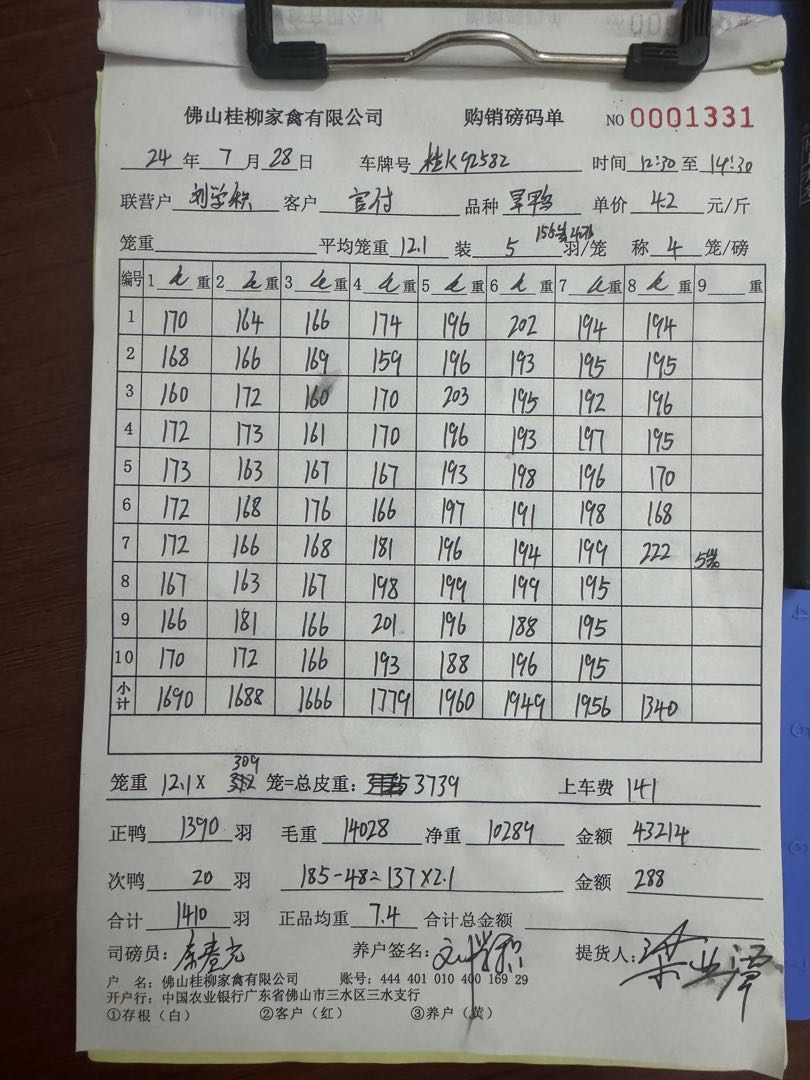 佛山桂柳家禽有限公司 购销磅码单 NO 0001331
24 年 7 月 28 日 车牌号 桂K92582 时间 12:30 至 14:30
联营户 刘学积 客户 官付 品种 旱鸭 单价 4.2 元/斤
笼重 平均笼重 12.1 装 5 羽/笼 称 4 笼/磅
编号 1 重 2 重 3 重 4 重 5 重 6 重 7 重 8 重 9 重
1 170 164 166 174 196 202 194 194
2 168 166 169 159 196 193 195 195
3 160 172 160 170 203 195 192 196
4 172 173 161 170 196 193 197 195
5 173 163 167 167 193 198 196 170
6 172 168 176 166 197 191 198 168
7 172 166 168 181 196 194 199 222 5笼
8 167 163 167 198 199 199 195
9 166 181 166 201 196 188 195
10 170 172 166 193 188 196 195
小计 1690 1688 1666 1779 1960 1949 1956 1340
309
笼重 12.1 X 312 笼=总皮重: 3739 上车费 141
正鸭 1390 羽 毛重 14028 净重 10289 金额 43214
次鸭 20 羽 185-48=137×2.1 金额 288
合计 1410 羽 正品均重 7.4 合计总金额
司磅员: 养户签名: 刘学积 提货人: 梁业潭
户 名: 佛山桂柳家禽有限公司 账号: 444 401 010 400 169 29
开户行: 中国农业银行广东省佛山市三水区三水支行
①存根（白） ②客户（红） ③养户（黄）